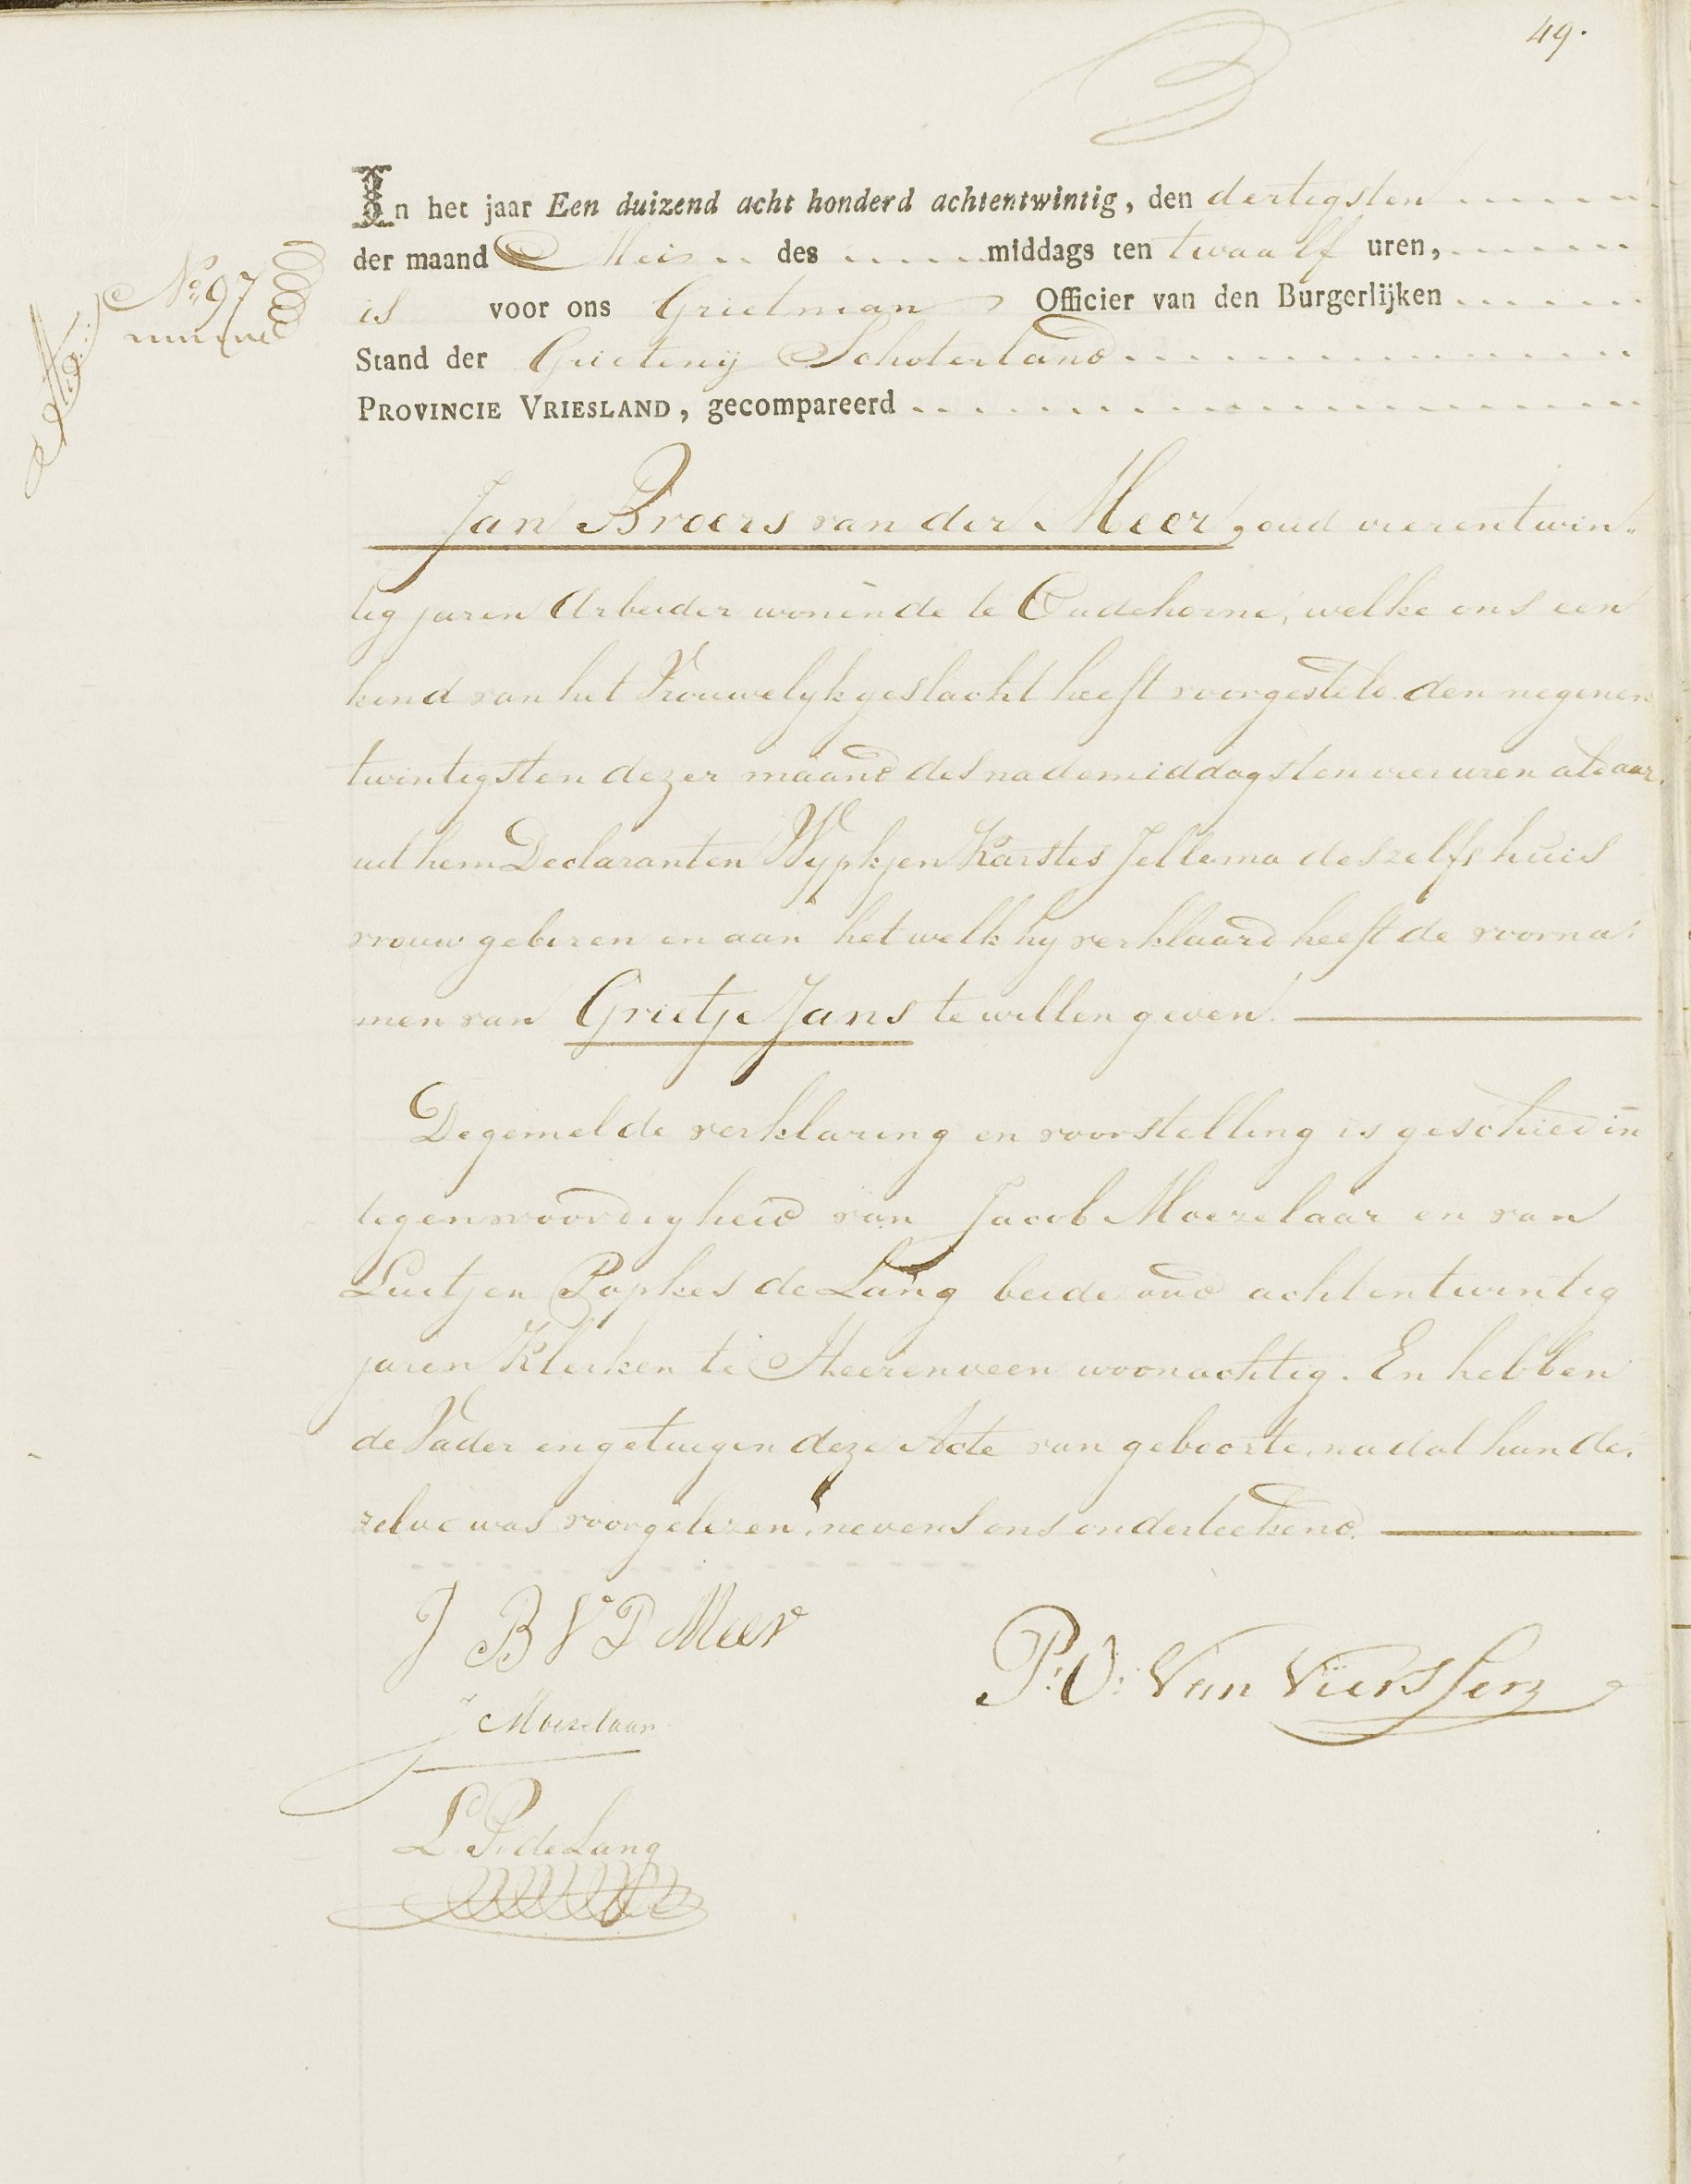 49.
In het jaar Een duizend acht honderd achtentwintig, den dertigsten
der maand Mei des middags ten twaalf uren,
No. 97
is voor ons Grietman Officier van den Burgerlijken
Stand der Grietenij Schoterland
PROVINCIE VRIESLAND, gecompareerd
Jan Broers van der Meer, oud vierentwin„
tig jaren Arbeider woninde te Oudehorne, welke ons een
kind van het Vrouwelyk geslacht heeft voorgesteld den negenen
twintigsten dezer maand des nademiddags ten vier uren aldaar
uit hem Declaranten Wypkjen Karstes Jellema deszelfs huis
vrouw geboren en aan het welk hy verklaard heeft de voorna:
men van Grietje Jans te willen geven.
De gemelde verklaring en voorstelling is geschied in
tegenswoordigheid van Jacob Moezelaar en van
Luitjen Popkes de Lang beide oud achtentwintig
jaren Klerken te Heerenveen woonachtig. En hebben
de Vader en getuigen deze Acte van geboorte, nadat hun de,
zelve was voorgelezen, nevens ons onderteekend.
J B V D Meer
P: V: Van Vierssen
J Moezelaar
L P. de Lang